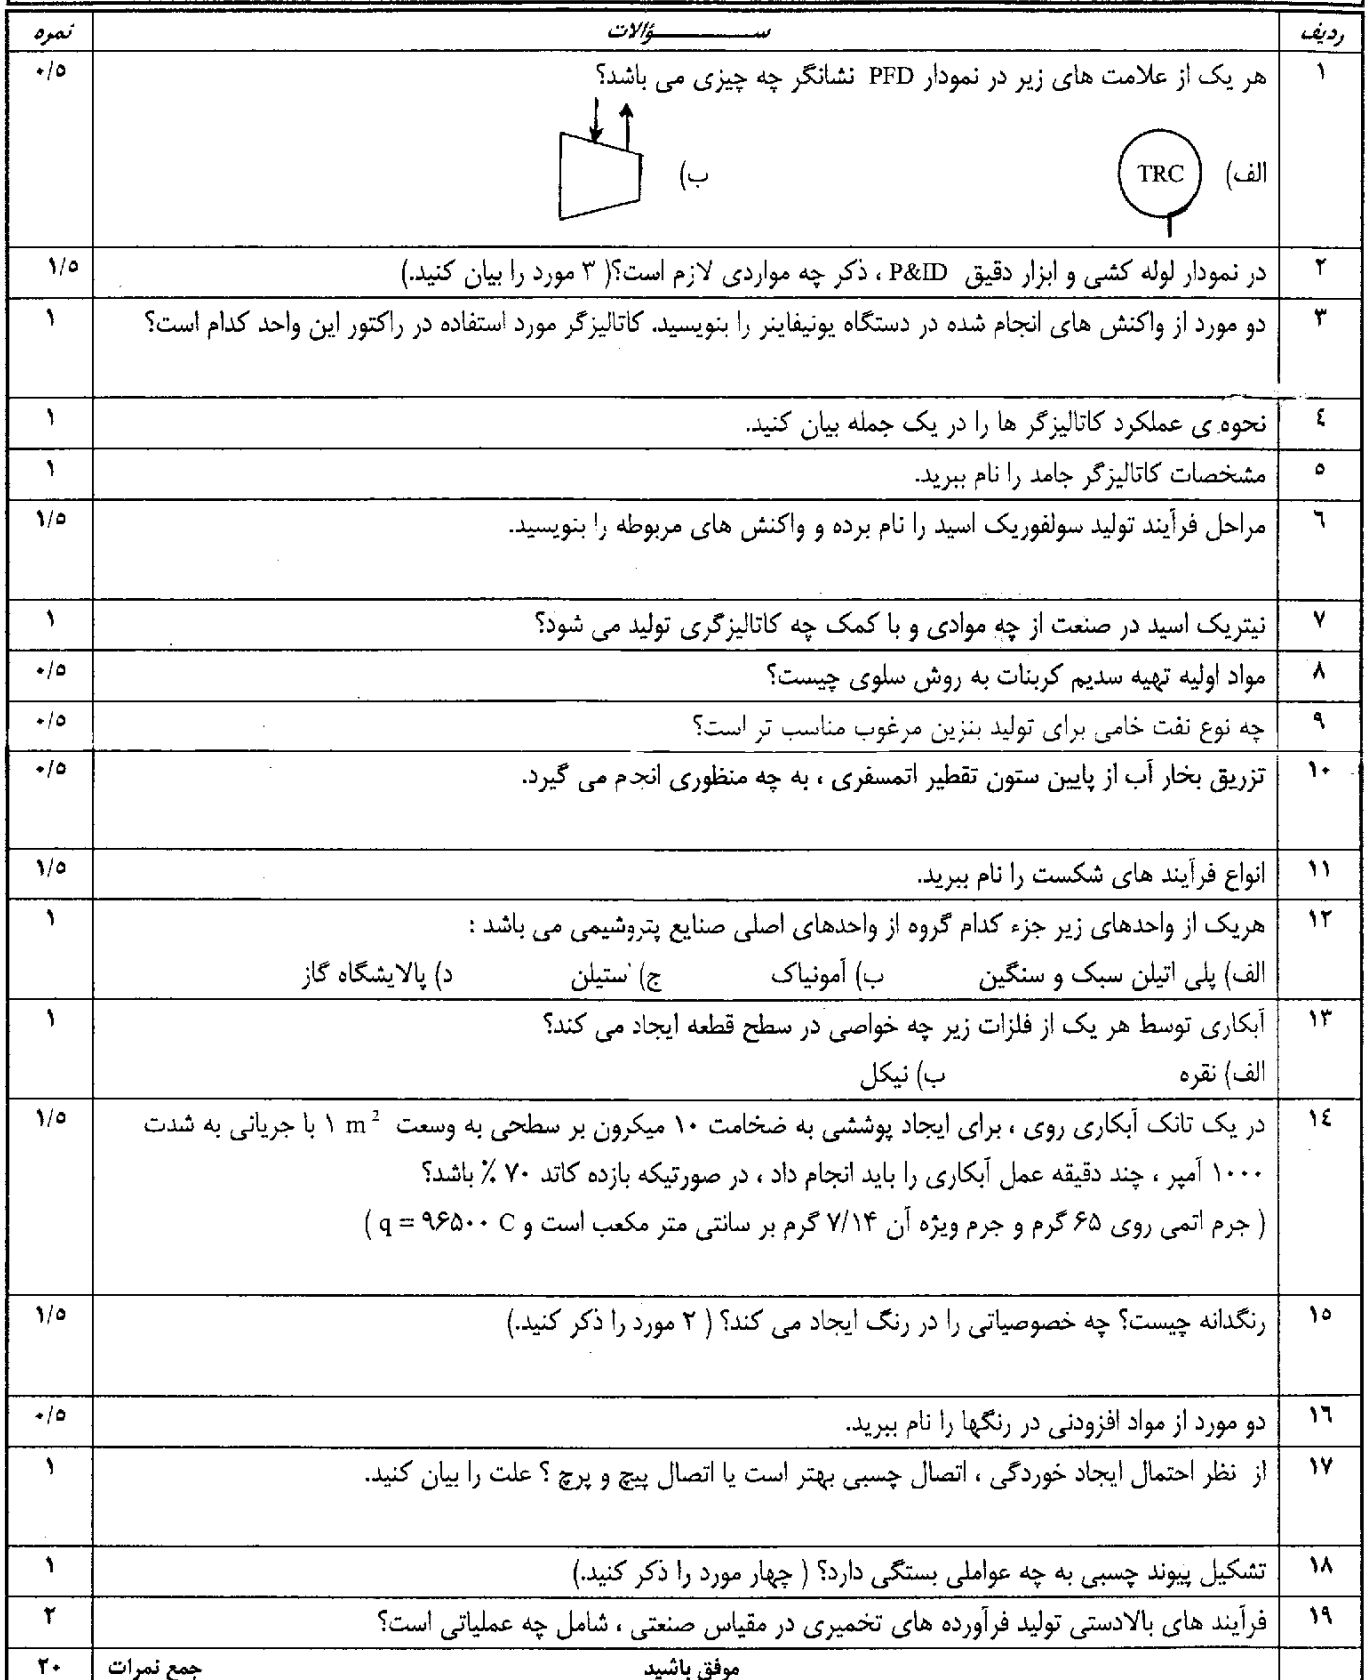 ردیف ســـــــؤالات نمره
۱ هر یک از علامت های زیر در نمودار PFD نشانگر چه چیزی می باشد؟ ۰/۵
الف) TRC ب)
۲ در نمودار لوله کشی و ابزار دقیق P&ID ، ذکر چه مواردی لازم است؟( ۳ مورد را بیان کنید.) ۱/۵
۳ دو مورد از واکنش های انجام شده در دستگاه یونیفاینر را بنویسید. کاتالیزگر مورد استفاده در راکتور این واحد کدام است؟ ۱
٤ نحوه ی عملکرد کاتالیزگر ها را در یک جمله بیان کنید. ۱
۵ مشخصات کاتالیزگر جامد را نام ببرید. ۱
٦ مراحل فرآیند تولید سولفوریک اسید را نام برده و واکنش های مربوطه را بنویسید. ۱/۵
۷ نیتریک اسید در صنعت از چه موادی و با کمک چه کاتالیزگری تولید می شود؟ ۱
۸ مواد اولیه تهیه سدیم کربنات به روش سلوی چیست؟ ۰/۵
۹ چه نوع نفت خامی برای تولید بنزین مرغوب مناسب تر است؟ ۰/۵
۱۰ تزریق بخار آب از پایین ستون تقطیر اتمسفری ، به چه منظوری انجام می گیرد. ۰/۵
۱۱ انواع فرآیند های شکست را نام ببرید. ۱/۵
۱۲ هریک از واحدهای زیر جزء کدام گروه از واحدهای اصلی صنایع پتروشیمی می باشد : ۱
الف) پلی اتیلن سبک و سنگین ب) آمونیاک ج) استیلن د) پالایشگاه گاز
۱۳ آبکاری توسط هر یک از فلزات زیر چه خواصی در سطح قطعه ایجاد می کند؟ ۱
الف) نقره ب) نیکل
۱٤ در یک تانک آبکاری روی ، برای ایجاد پوششی به ضخامت ۱۰ میکرون بر سطحی به وسعت ۱ m² با جریانی به شدت ۱/۵
۱۰۰۰ آمپر ، چند دقیقه عمل آبکاری را باید انجام داد ، در صورتیکه بازده کاتد ۷۰ ٪ باشد؟
( جرم اتمی روی ۶۵ گرم و جرم ویژه آن ۷/۱۴ گرم بر سانتی متر مکعب است و q = ۹۶۵۰۰ C )
۱۵ رنگدانه چیست؟ چه خصوصیاتی را در رنگ ایجاد می کند؟ ( ۲ مورد را ذکر کنید.) ۱/۵
۱٦ دو مورد از مواد افزودنی در رنگها را نام ببرید. ۰/۵
۱۷ از نظر احتمال ایجاد خوردگی ، اتصال چسبی بهتر است یا اتصال پیچ و پرچ ؟ علت را بیان کنید. ۱
۱۸ تشکیل پیوند چسبی به چه عواملی بستگی دارد؟ ( چهار مورد را ذکر کنید.) ۱
۱۹ فرآیند های بالادستی تولید فرآورده های تخمیری در مقیاس صنعتی ، شامل چه عملیاتی است؟ ۲
موفق باشید جمع نمرات ۲۰